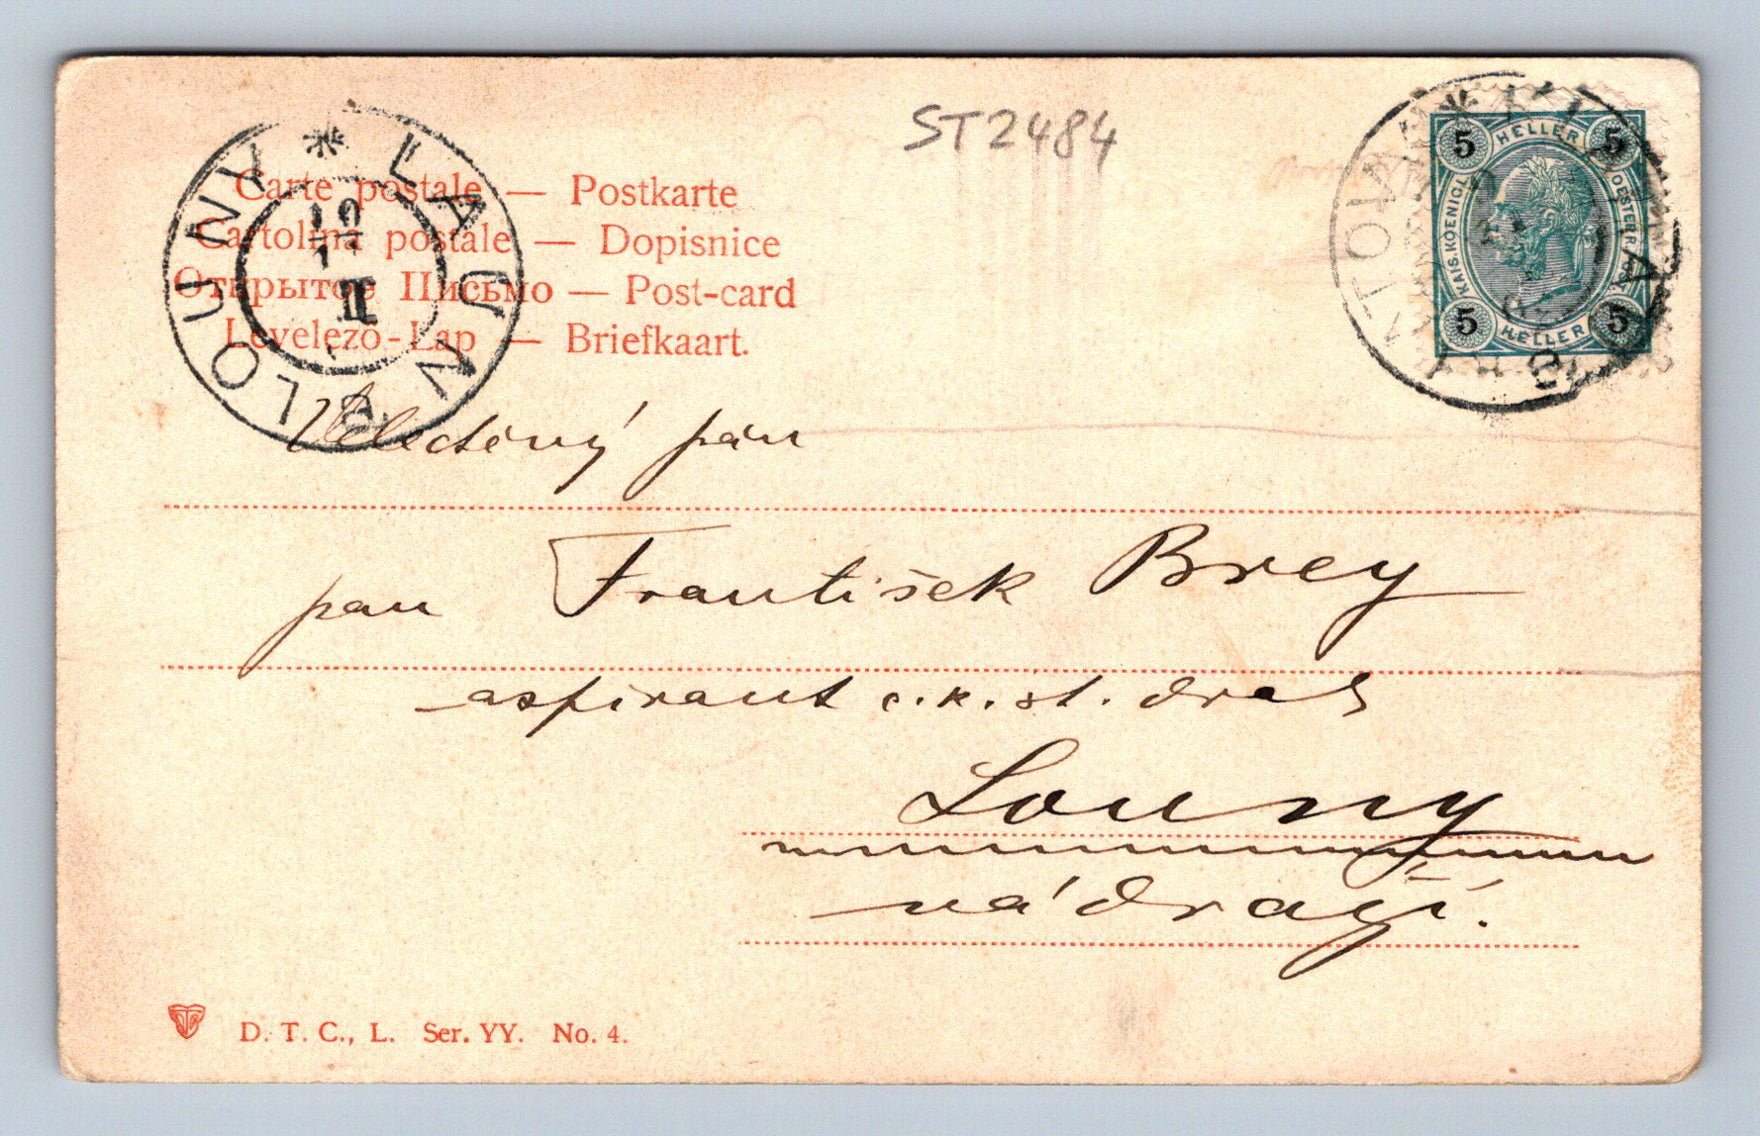 ST2484
Carte postale — Postkarte
Cartolina postale — Dopisnice
Открытое Письмо — Post-card
Levelezo-Lap — Briefkaart.
LOUNY * LAUN
10
II
5 HELLER 5
KAIS. KOENIGL. OESTERR.
5 HELLER 5
Velectěný pán
pan František Brey
aspirant c.k. st. drah
Louny
nádraží.
D. T. C., L. Ser. YY. No. 4.